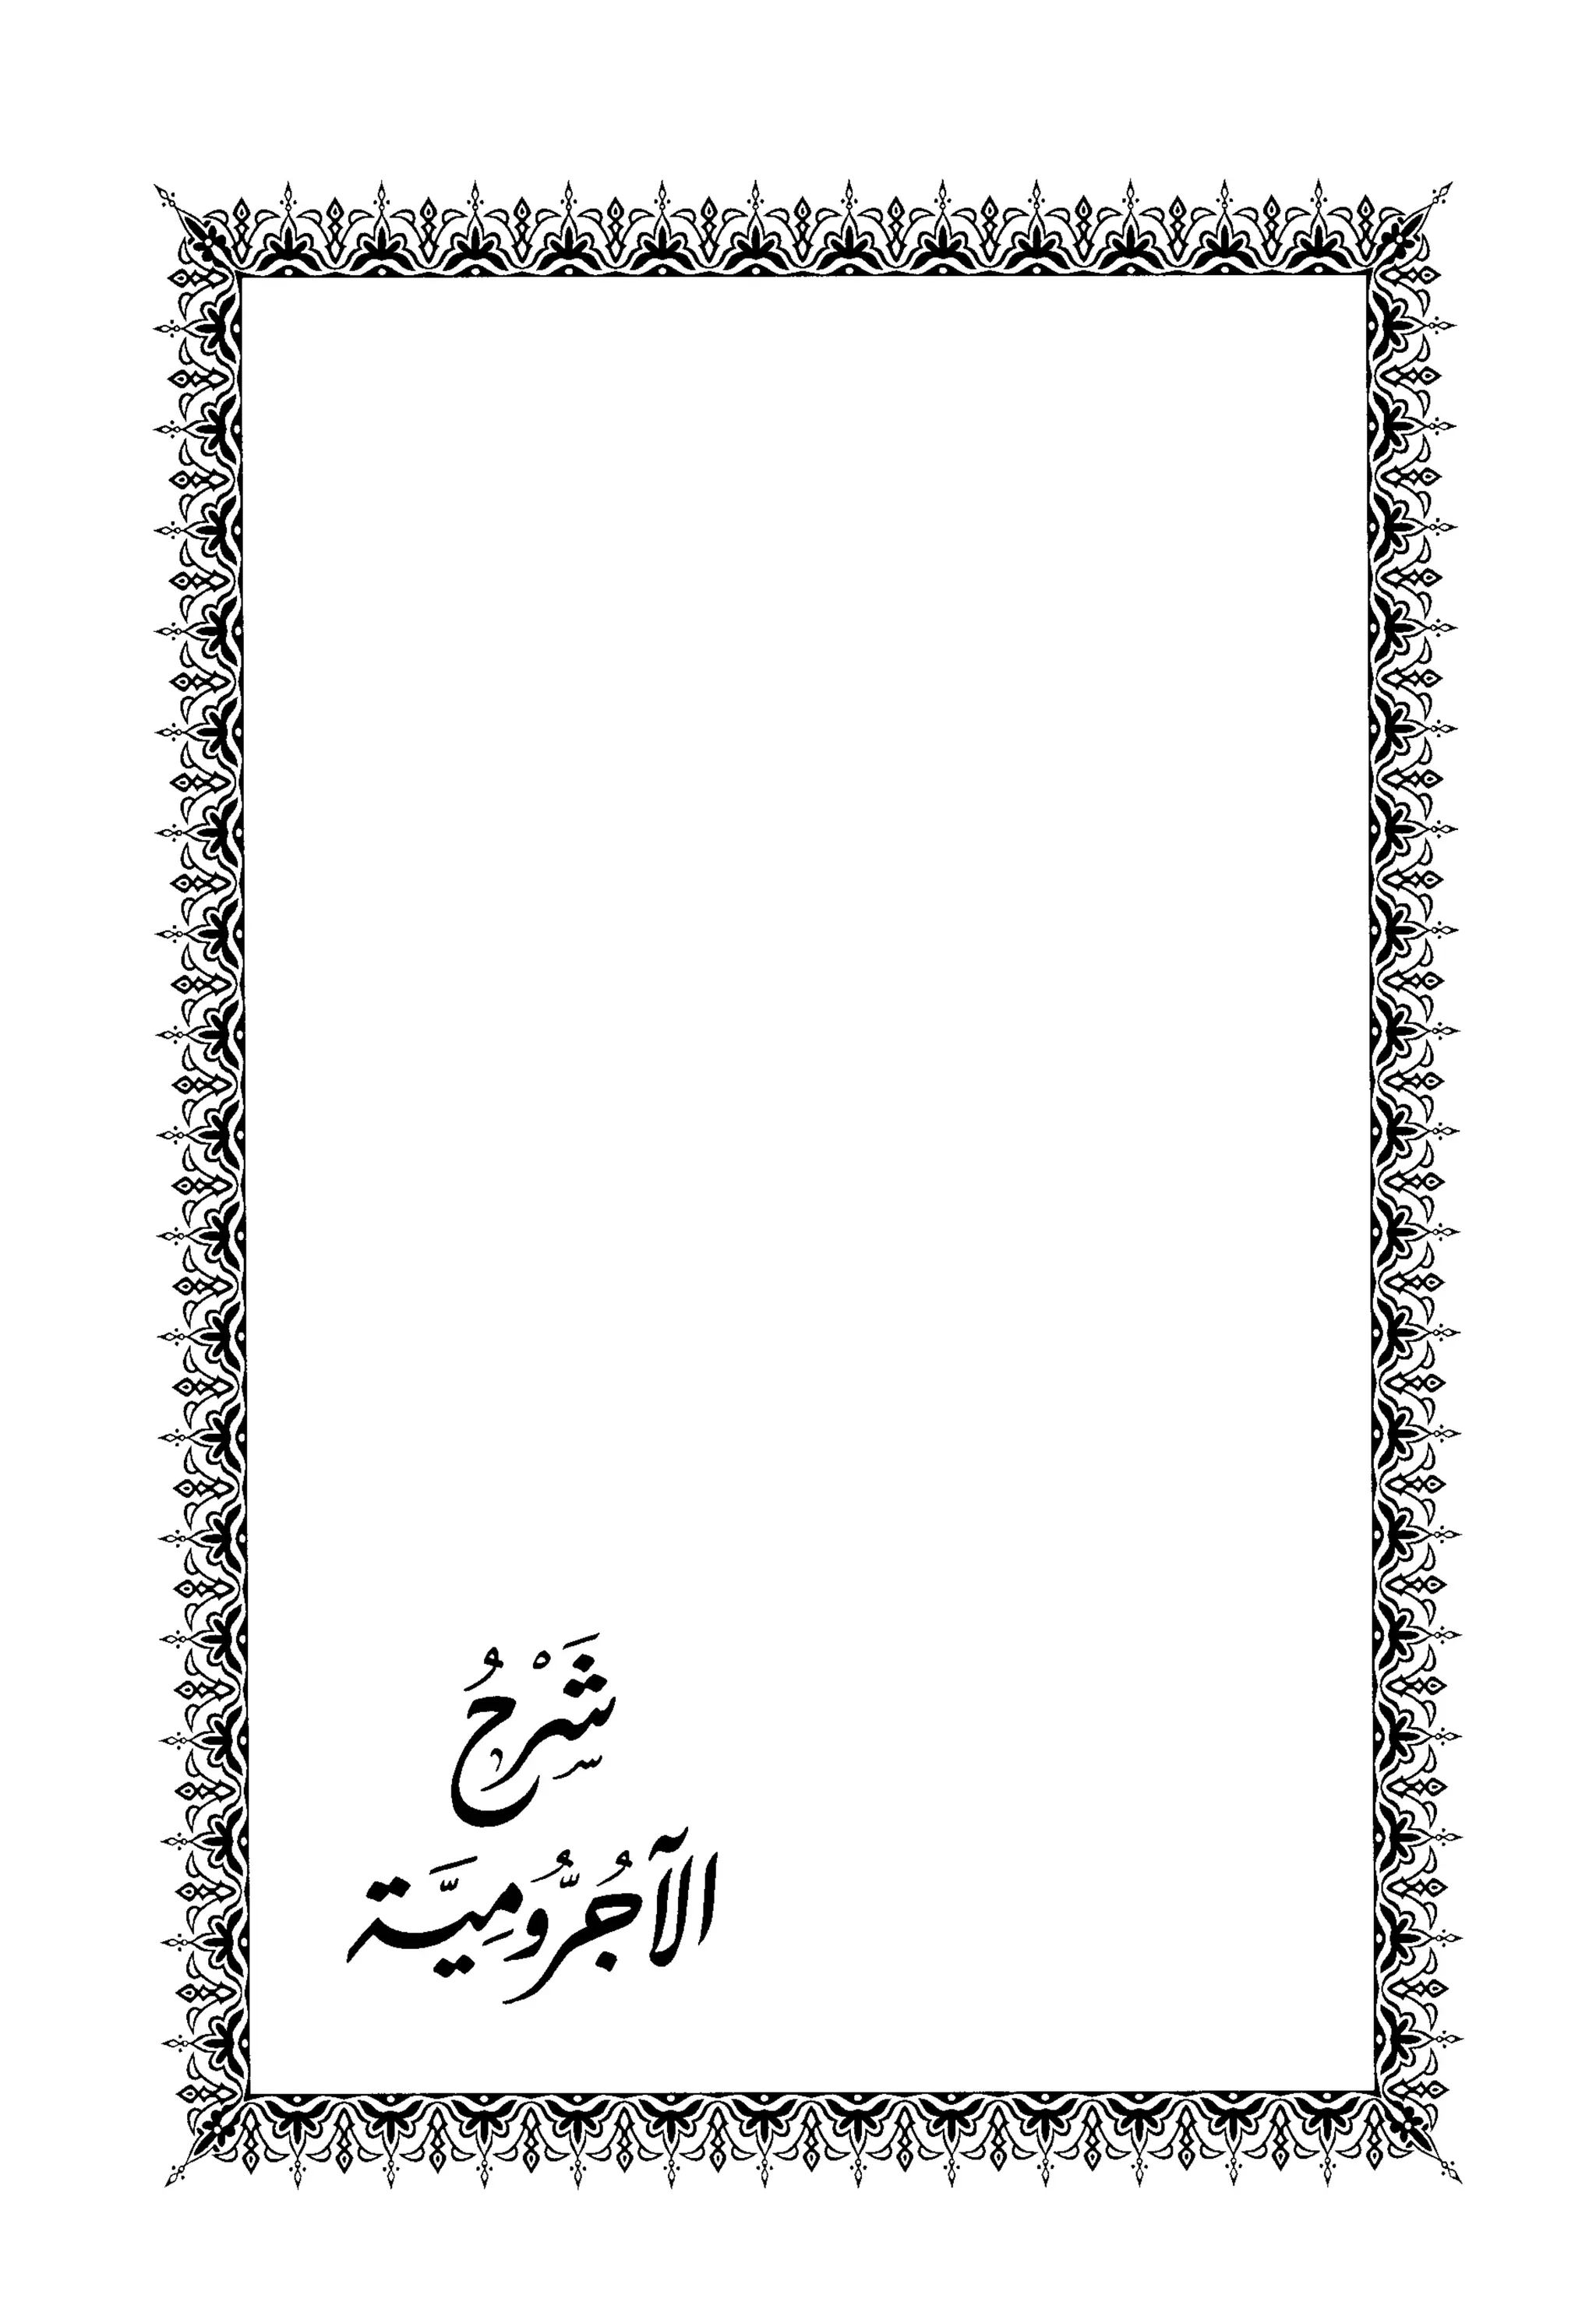 شَرْحُ
الآجُرُّومِيَّة